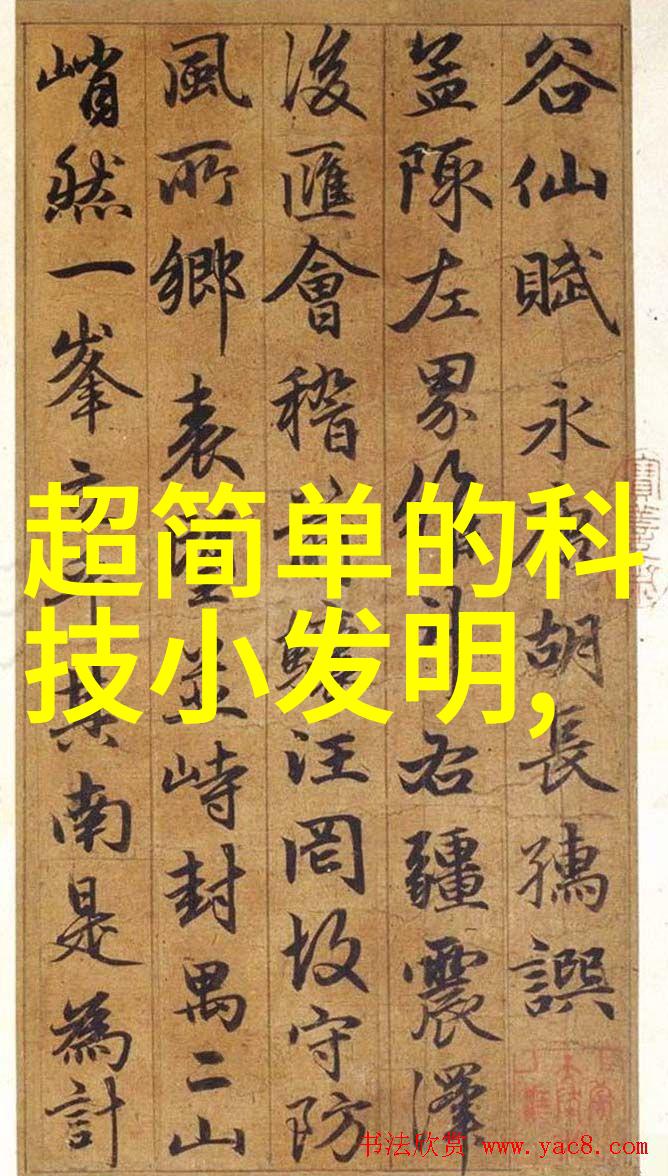 谷仙賦 永康胡長孺譔
孟陬左界 右疆震澤
後匯會稽 汪罔故守防
風所鄉表望並峙封禺二山
峭然一峯 其南是為計
超简单的科
技小发明,
书法欣赏 www.yac8.com